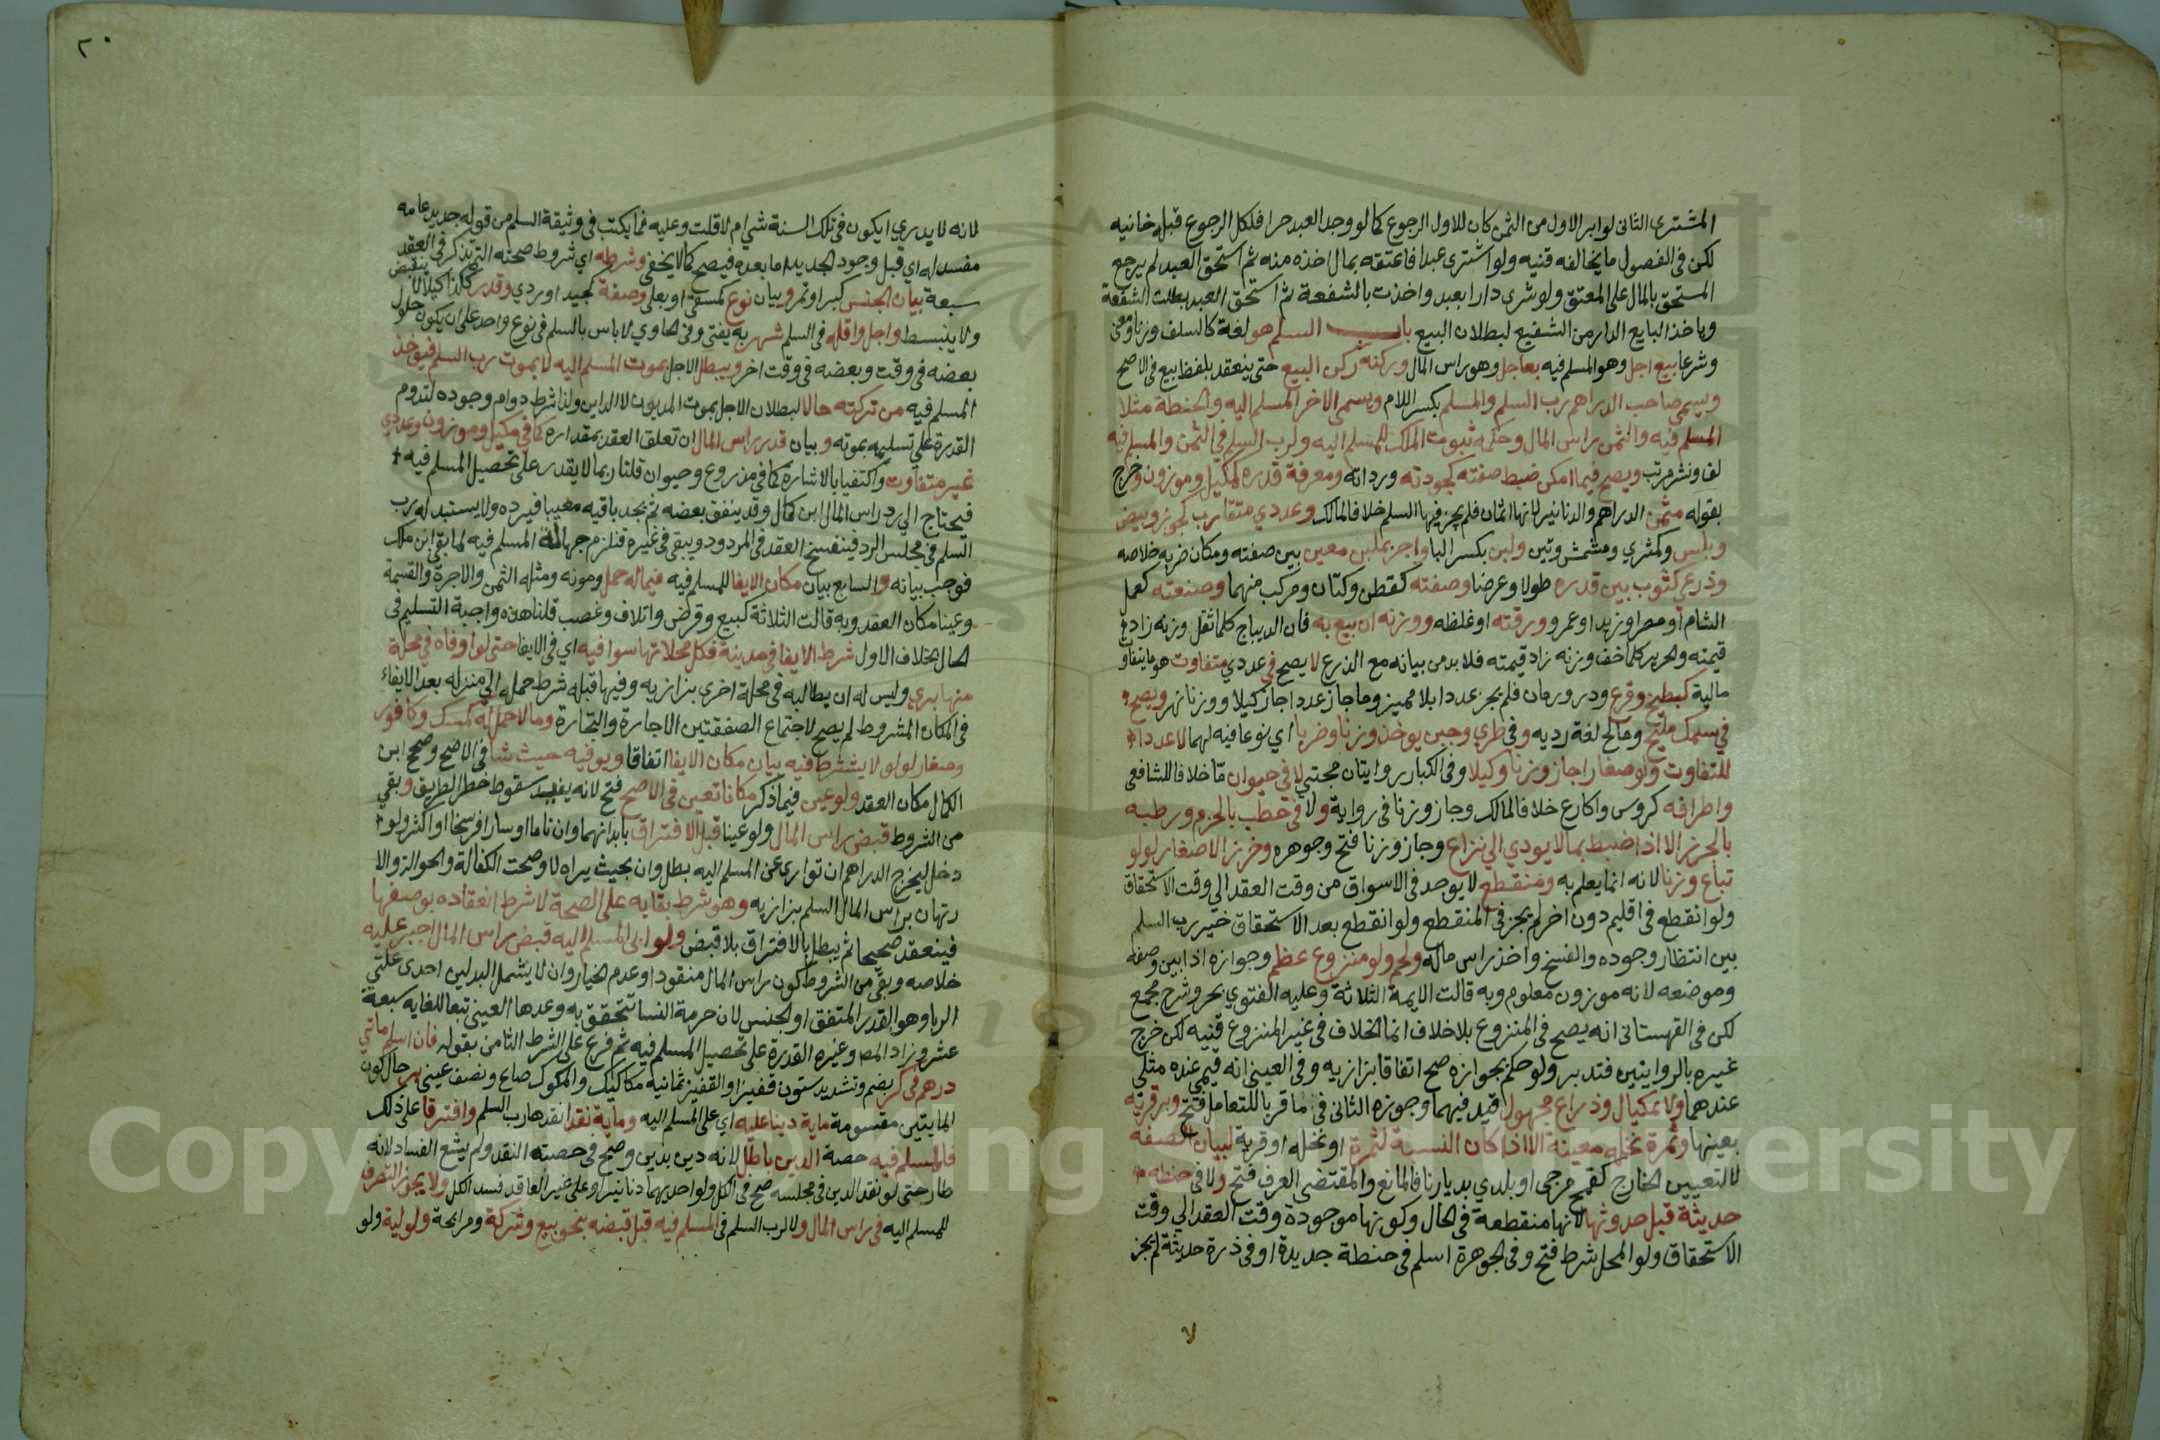 المشتري الثاني لو ابرا الاول من الثمن كان للاول الرجوع كما لو وجد العبد حرا فلكل الرجوع قبله خانيه
لكن في الفصول ما يخالفه قنيه ولو اشترى عبدا فاعتقه بمال اخذه منه ثم استحق العبد لم يرجع
المستحق بالمال على المعتق ولو شري دارا بعبد واخذت بالشفعة ثم استحق العبد بطلت الشفعة
وياخذ البايع الدار من الشفيع لبطلان البيع باب السلم هو لغة كالسلف وزنا ومعنى
وشرعا بيع اجل وهو المسلم فيه بعاجل وهو راس المال وركنه ركن البيع حتى ينعقد بلفظ بيع في الاصح
ويسمي صاحب الدراهم رب السلم والمسلم بكسر اللام ويسمى الاخر المسلم اليه والحنطة مثلا
المسلم فيه والثمن راس المال وحكمه ثبوت الملك للمسلم اليه ولرب السلم في الثمن والمسلم فيه
لف ونشر مرتب ويصح فيما امكن ضبط صفته كجودته ورداته ومعرفة قدره كمكيل وموزون وخرج
بقوله مثمن الدراهم والدنانير لانها اثمان فلم يجز فيها السلم خلافا لمالك وعددي متقارب كجوز وبيض
وفلس وكمثري ومشمش وتين ولبن بكسر البا واجر بملبن معين بين صفته ومكان ضربه خلاصه
وذرعي كثوب بين قدره طولا وعرضا وصفته كقطن وكتان ومركب منهما وصنعته كعمل
الشام او مصر او زيد او عمرو ورقته او غلظه ووزنه ان بيع به فان الديباج كلما ثقل وزنه زاد في
قيمته والحرير كلما خف وزنه زاد قيمته فلا بد من بيانه مع الذرع لا يصح في عددي متفاوت هو ما يتفاوت
مالية كبطيخ وقرع ودر ورمان فلم يجز عددا بلا مميز وما جاز عددا جاز كيلا ووزنا نهر ويصح
في سمك مليح ومالح لغة رديه وفي طري وجبن يوخذ وزنا وضربا اي نوعا فيه لهما لا عددا
للتفاوت ولو صغارا جاز وزنا وكيلا وفي الكبار روايتان مجتبي لا في حيوان ما خلافا للشافعي
واطرافه كروس واكارع خلافا لمالك وجاز وزنا في رواية ولا في حطب بالحزم ورطبه
بالجرز الا اذا ضبط بما لا يودي الي نزاع وجاز وزنا فتح وجوهره وخرز الا صغار لولو
تباع وزنا لانه انما يعلم به ومنقطع لا يوجد في الاسواق من وقت العقد الي وقت الاستحقاق
ولو انقطع في اقليم دون اخر لم يجز في المنقطع ولو انقطع بعد الاستحقاق خير رب السلم
بين انتظار وجوده والفسخ واخذ راس ماله ولحم ولو منزوع عظم وجوازه اذا بين وصفه
وموضعه لانه موزون معلوم وبه قالت الايمة الثلاثة وعليه الفتوي بحر وشرح مجمع
لكن في القهستاني انه يصح في المنزوع بلا خلاف انما الخلاف في غير المنزوع قنيه لكن خرج
غيره بالروايتين فتدبر ولو حكم بجوازه صح اتفاقا بزازيه وفي العيني انه قيمي عنده مثلي
عندهما ولا بمكيال وذراع مجهول قيد فيهما وجوزه الثاني في الما قربا للتعامل فتح وبر قرية
بعينها وثمرة نخله معينة الا اذا كان النسبة لثمرة او نخله او قرية لبيان الصفه
لا لتعيين الخارج كقمح مرجي او بلدي بديارنا فالمانع والمقتضي العرف فتح ولا في حنطه
حديثة قبل حدوثها لانها منقطعة في الحال وكونها موجودة وقت العقد الي وقت
الاستحقاق ولو المحل شرط فتح وفي الجوهرة اسلم في حنطة جديدة او في ذرة حديثة لم يجز
لا
٢٠
لانه لا يدري ايكون في تلك السنة شي ام لا قلت وعليه فما يكتب في وثيقة السلم من قوله جديد عامه
مفسد له اي قبل وجود الجديد اما بعده فيصح كما لا يخفى وشرطه اي شروط صحته التي تذكر في العقد
سبعة بيان الجنس كبر او تمر وبيان نوع كمسقي او بعلي وصفة كجيد او ردي وقدر كذا كيلا لا ينقبض
ولا ينبسط واجل واقله في السلم شهر به يفتى وفي الحاوي لا باس بالسلم في نوع واحد على ان يكون حلول
بعضه في وقت وبعضه في وقت اخر ويبطل الاجل بموت المسلم اليه لا بموت رب السلم فيوخذ
المسلم فيه من تركته حالا لبطلان الاجل بموت المديون لا الداين ولذا شرط دوام وجوده لتدوم
القدرة علي تسليمه بموته وبيان قدر راس المال ان تعلق العقد بمقداره كما في مكيل وموزون وعددي
غير متفاوت واكتفيا بالاشارة كما في مذروع وحيوان قلنا ربما لا يقدر على تحصيل المسلم فيه
فيحتاج الي رد راس المال ابن كمال وقد ينفق بعضه ثم يجد باقيه معيبا فيرده ولا يستبدله رب
السلم في مجلس الرد فينفسخ العقد في المردود ويبقى في غيره فتلزم جهالة المسلم فيه لما بقي ابن ملك
فوجب بيانه والسابع بيان مكان الايفا للمسلم فيه فيما له حمل ومونه ومثله الثمن والاجرة والقسمة
وعينا مكان العقد وبه قالت الثلاثة كبيع وقرض واتلاف وغصب قلنا هذه واجبة التسليم في
الحال بخلاف الاول شرط الايفا في مدينة فكل محلاتها سوا فيه اي في الايفا حتى لو اوفاه في محلة
منها بري وليس له ان يطالبه في محلة اخري بزازيه وفيها قبله شرط حمله الي منزله بعد الايفاء
في المكان المشروط لم يصح لاجتماع الصفقتين الاجارة والتجارة وما لا حمل له كمسك وكافور
وصغار لولو لا يشترط فيه بيان مكان الايفا اتفاقا ويوفيه حيث شا في الاصح وصحح ابن
الكمال مكان العقد ولو عين فيما ذكر مكانا تعين في الاصح فتح لانه يفيد سقوط خطر الطريق وبقي
من الشروط قبض راس المال ولو عينا قبل الافتراق بابدانهما وان ناما او سارا فرسخا او اكثر ولو
دخل ليخرج الدراهم ان تواري عن المسلم اليه بطل وان بحيث يراه لا وصحت الكفالة والحوالة والا
رتهان براس المال السلم بزازيه وهو شرط بقايه على الصحة لا شرط انعقاده بوصفها
فينعقد صحيحا ثم يبطل بالافتراق بلا قبض ولو ابى المسلم اليه قبض راس المال اجبر عليه
خلاصه وبقي من الشروط كون راس المال منقودا وعدم الخيار وان لا يشمل البدلين احدى علتي
الربا وهو القدر المتفق او الجنس لان حرمة النسا تتحقق به وعدها العيني تبعا للغايه سبعة
عشر وزاد المص وغيره القدرة على تحصيل المسلم فيه ثم فرع على الشرط الثامن بقوله فان اسلم مائتي
درهم في كر بضم وتشديد ستون قفيزا والقفيز ثمانيه مكاكيك والمكوك صاع ونصف عيني بر حال كون
المايتين مقسومة ماية دينا عليه اي على المسلم اليه وماية نقدا نقدها رب السلم وافترقا على ذلك
فالمسلم فيه حصة الدين باطل لانه دين بدين وصح في حصته النقد ولم يشع الفساد لانه
طار حتى لو نقد الدين في مجلسه صح في الكل ولو احديهما دنانير او على غير العاقد فسد الكل ولا يجوز التصرف
للمسلم اليه في راس المال ولا لرب السلم في المسلم فيه قبل قبضه بنحو بيع وشركة ومرابحة وتولية ولو
Copyright © King Saud University